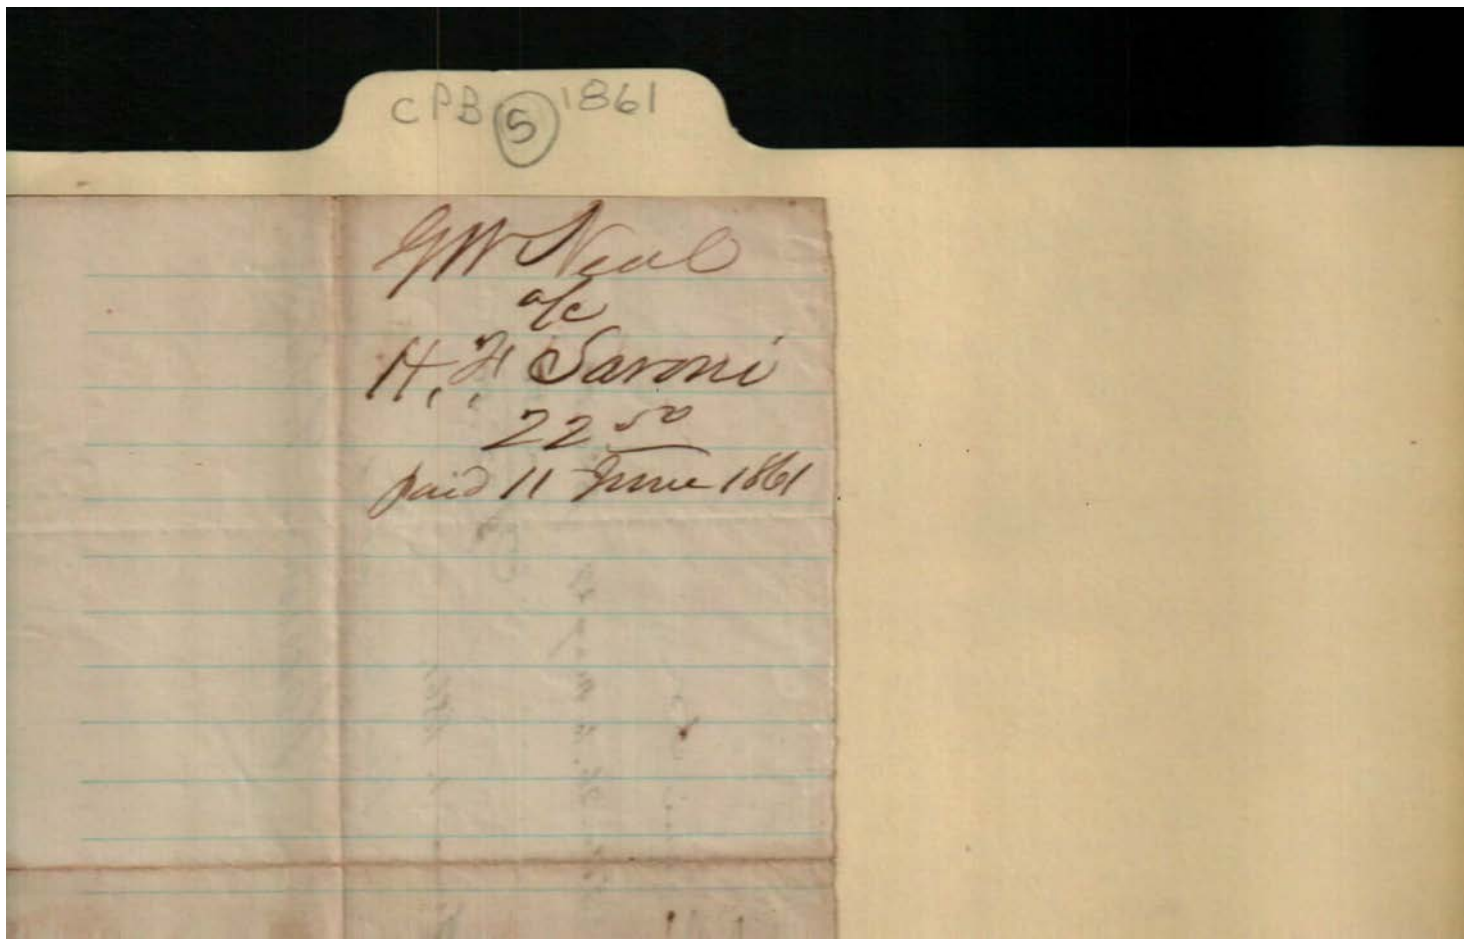 CPB 5 1861
GW Neal
a/c
H. Saroni
22 50
paid 11 June 1861